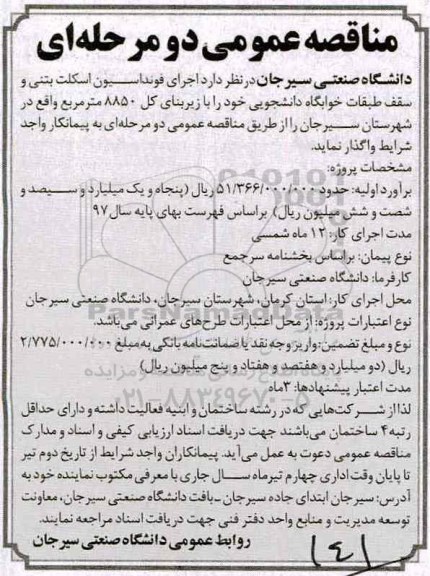 مناقصه عمومی دو مرحله‌ای
دانشگاه صنعتی سیرجان در نظر دارد اجرای فونداسیون اسکلت بتنی و
سقف طبقات خوابگاه دانشجویی خود را با زیربنای کل ۸۸۵۰ مترمربع واقع در
شهرستان سیرجان را از طریق مناقصه عمومی دو مرحله‌ای به پیمانکار واجد
شرایط واگذار نماید.
مشخصات پروژه:
برآورد اولیه: حدود ۵۱/۳۶۶/۰۰۰/۰۰۰ ریال (پنجاه و یک میلیارد و سیصد و
شصت و شش میلیون ریال) براساس فهرست بهای پایه سال ۹۷
مدت اجرای کار: ۱۲ ماه شمسی
نوع پیمان: براساس بخشنامه سرجمع
کارفرما: دانشگاه صنعتی سیرجان
محل اجرای کار: استان کرمان، شهرستان سیرجان، دانشگاه صنعتی سیرجان
نوع اعتبارات پروژه: از محل اعتبارات طرح‌های عمرانی می‌باشد.
نوع و مبلغ تضمین: واریز وجه نقد یا ضمانت‌نامه بانکی به مبلغ ۲/۷۷۵/۰۰۰/۰۰۰
ریال (دو میلیارد و هفتصد و هفتاد و پنج میلیون ریال)
مدت اعتبار پیشنهادها: ۳ ماه
لذا از شرکت‌هایی که در رشته ساختمان و ابنیه فعالیت داشته و دارای حداقل
رتبه ۴ ساختمان می‌باشند جهت دریافت اسناد ارزیابی کیفی و اسناد و مدارک
مناقصه عمومی دعوت به عمل می‌آید. پیمانکاران واجد شرایط از تاریخ دوم تیر
تا پایان وقت اداری چهارم تیرماه سال جاری با معرفی مکتوب نماینده خود به
آدرس: سیرجان ابتدای جاده سیرجان ـ بافت دانشگاه صنعتی سیرجان، معاونت
توسعه مدیریت و منابع واحد دفتر فنی جهت دریافت اسناد مراجعه نمایند.
روابط عمومی دانشگاه صنعتی سیرجان
۱۴۱
ParsNamadData
۰۲۱-۸۸۳۴۹۶۷۰-۵